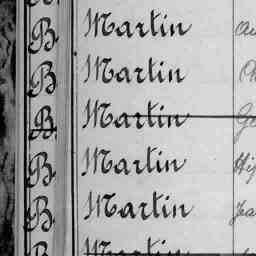 B Martin
B Martin
B Martin
B Martin
B Martin
B Martin